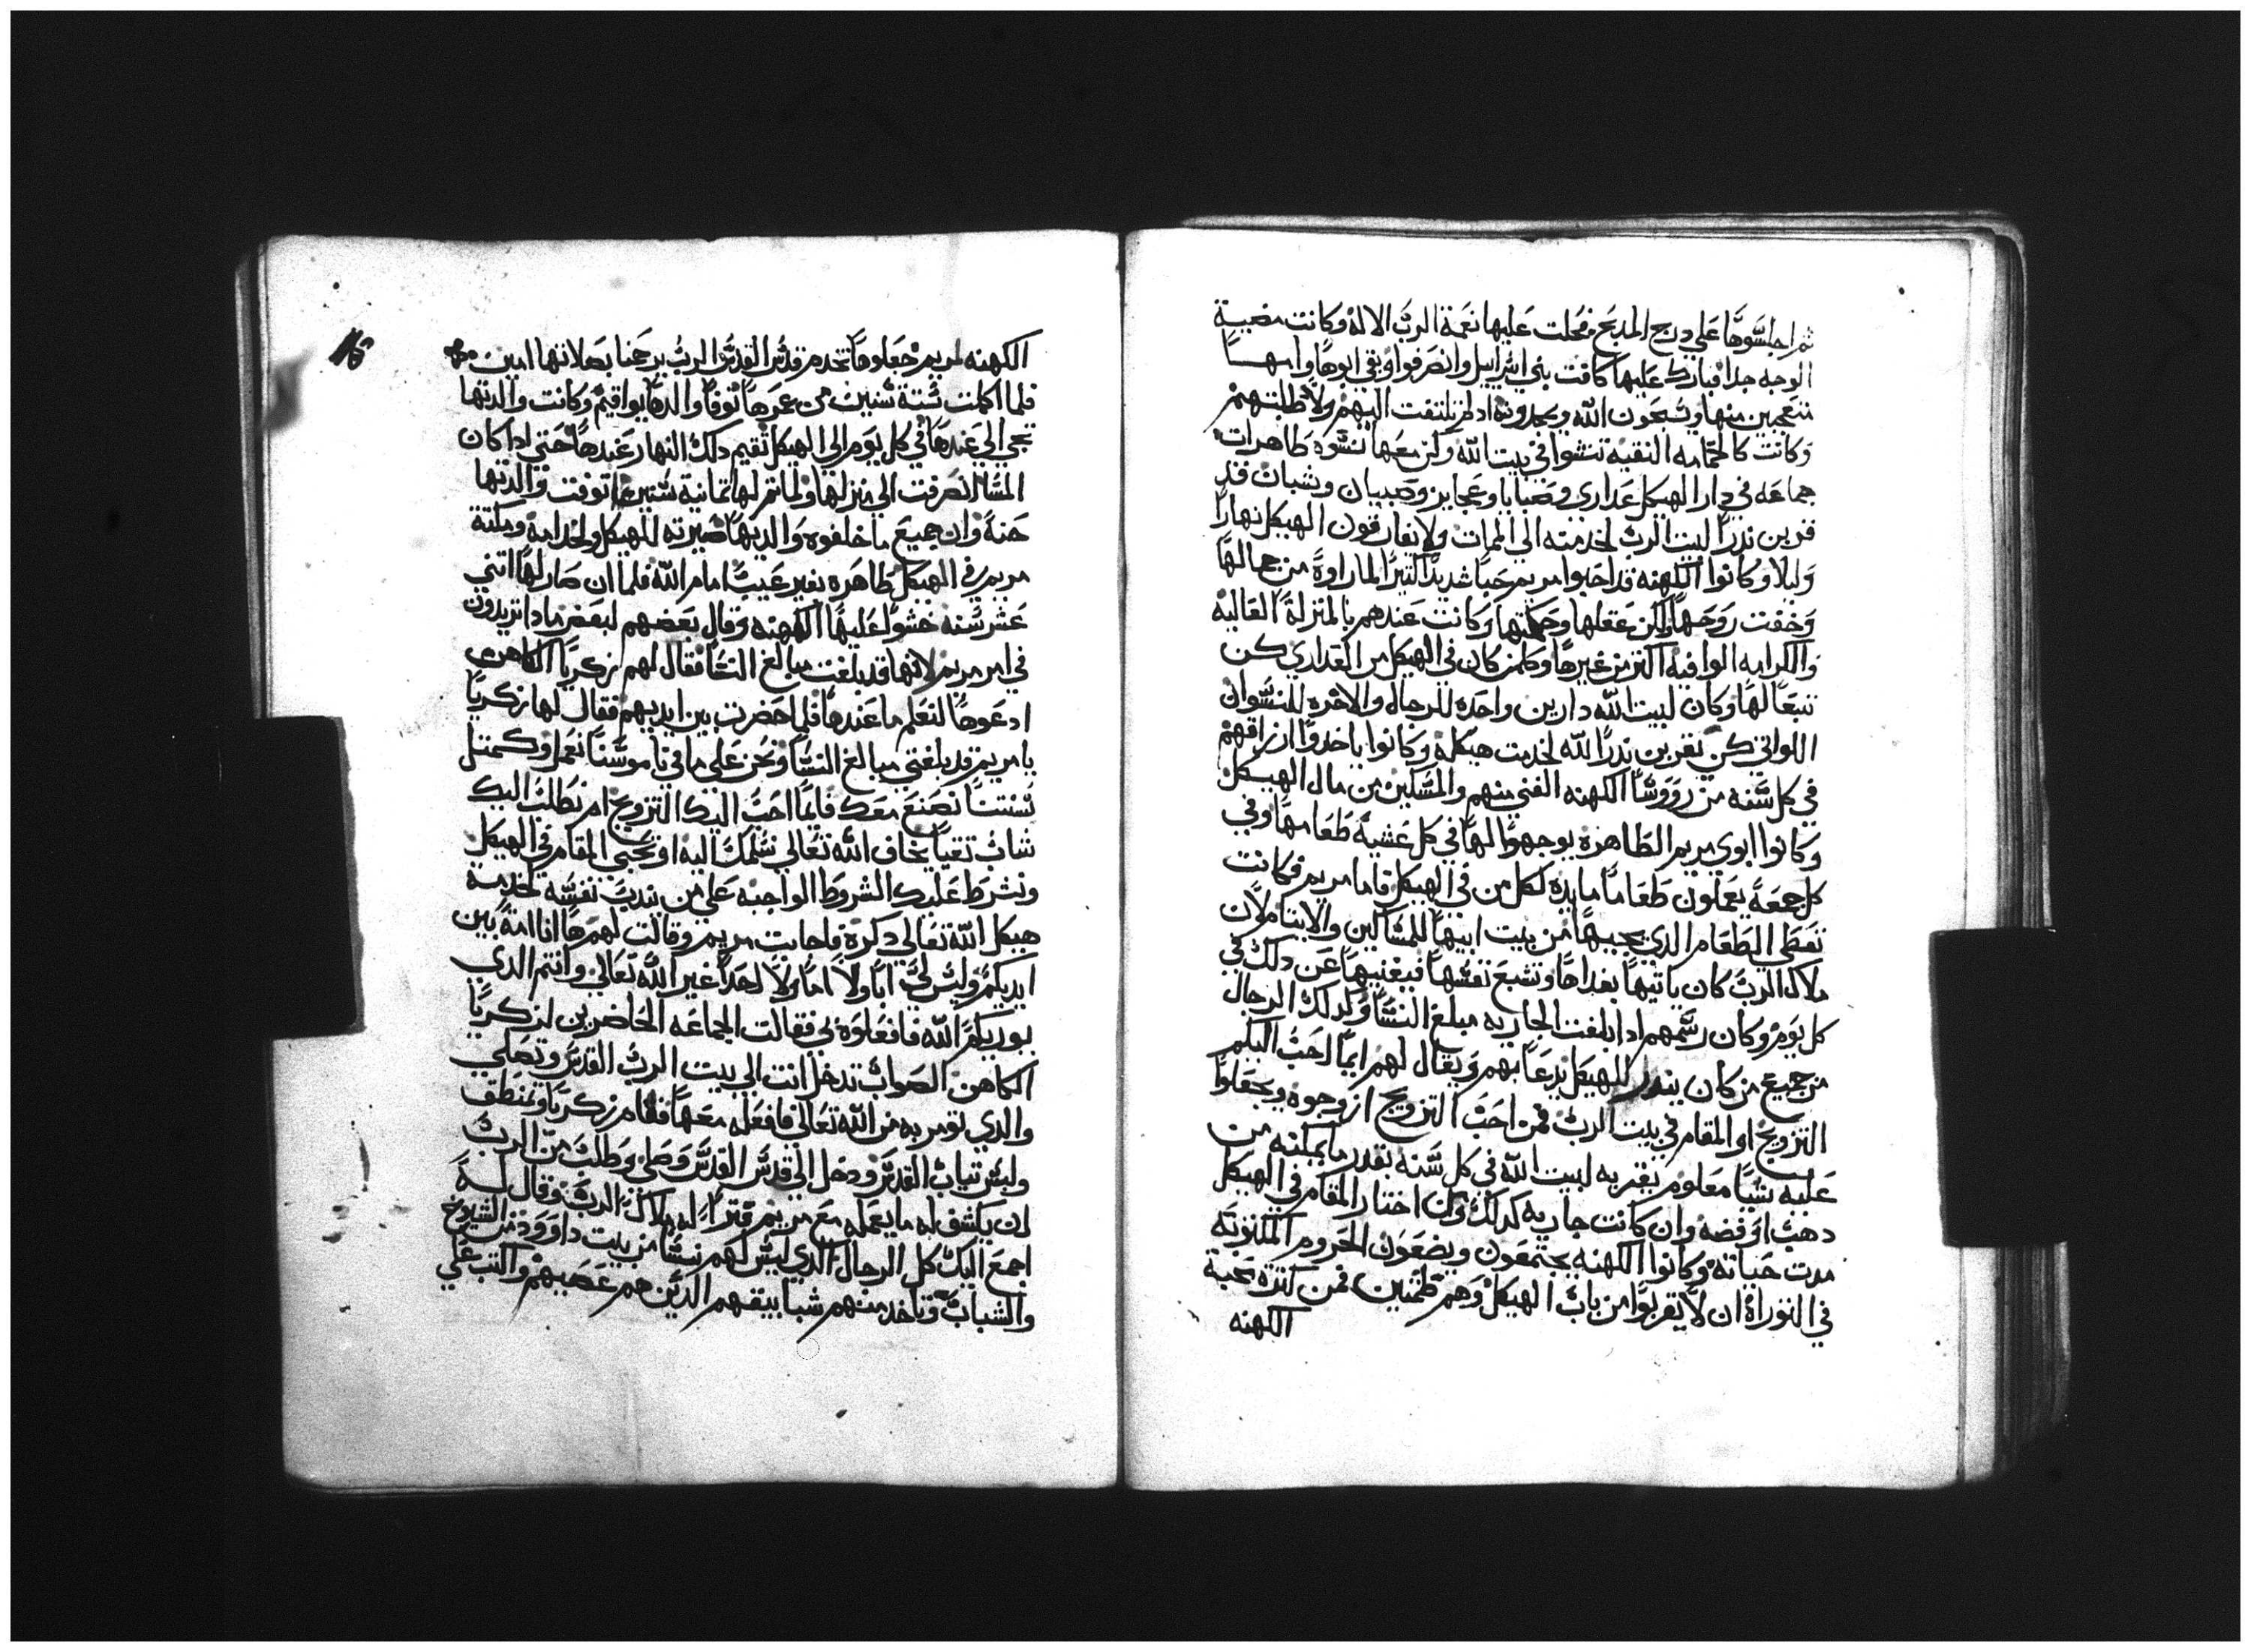 ثم اجلسوها علي درج المدبح فحلت عليها نعمة الرب الاله وكانت مضيية
الوجه جدا فبارك عليها كافت بني اسراييل وانصرفوا وبقي ابوها وامها
متعجبين منها ويسبحون الله ويمجدونه اد لم تلتفت اليهم ولا طلبتهم
وكانت كالحمامه النقيه تنشوا في بيت الله وكن معها نسوه طاهرات
جماعه في دار الهيكل عداري وصبايا وعجايز وصبيان وشبان قد
قربن ندرا لبيت الرب لخدمته الي الممات ولا يفارقون الهيكل نهارا
وليلا وكانوا الكهنه قد احبوا مريم حبا شديدا كتيرا لما راوه من جمالها
وخفت روحها ولكن عقلها وحكمتها وكانت عندهم بالمنزلة العاليه
والكرامه الوافيه اكتر من غيرها وكلمن كان في الهيكل من العداري كن
تتبعا لها وكان لبيت الله دارين واحده للرجال والاخره للنسوان
اللواتي كن تقربن ندرا لله لخدمت هيكله وكانوا ياخدوا ارزاقهم
في كل سنه من رووسا الكهنه الغني منهم والمسكين من مال الهيكل
وكانوا ابوي مريم الطاهره يوجهوا لها في كل عشيه طعامها وفي
كل جمعه يعملون طعاما مايده لكل من في الهيكل فاما مريم فكانت
تعطي الطعام الدي يجيبها من بيت ابيها للمساكين والايتام لان
ملاك الرب كان ياتيها بغداها وتشبع نفسها فيغنيها عن دلك في
كل يوم وكان رسمهم ادا بلغت الجاريه مبلغ النسا وكدلك الرجال
من جميع من كان يندر للهيكل يدعا بهم ويقال لهم ايما احب اليكم
التزويج او المقام في بيت الرب فمن احب التزويج ازوجوه ويجعلوا
عليه شيا معلوم يقربه لبيت الله في كل سنه بقدر ما يمكنه من
دهب او فضه وان كانت جاريه كدلك وان اختار المقام في الهيكل
مدت حياته وكانوا الكهنه يجتمعون ويضعون الحروم المكتوبه
في التوراة ان لا يقربوا من باب الهيكل وهم طمتين فمن كترة محبة
الكهنه
الكهنه لمريم جعلوها تخدم قدس القدس الرب يرحمنا بصلاتها امين
فلما اكملت ستة سنين من عمرها توفا والدها يواقيم وكانت والدتها
تجي الي عندها في كل يوم الي الهيكل تقيم دلك النهار عندها حتي ادا كان
المسا انصرفت الي منزلها ولما تم لها تمانية سنين توفت والدتها
حنة وان جميع ما خلفوه والديها صيرته للهيكل ولخدامه ومكتة
مريم في الهيكل طاهره بغير عيب امام الله فلما ان صار لها اتني
عشر سنه خشوا عليها الكهنه وقال بعضهم لبعض مادا تريدون
في امر مريم لانها قد بلغت مبالغ النسا فقال لهم زكريا الكاهن
ادعوها لنعلم ما عندها فلما حضرت بين ايديهم فقال لها زكريا
يا مريم قد بلغتي مبالغ النسا ونحن علي ما في ناموسنا نعمل وكمتل
سنتنا نصنع معك فايما احب اليك التزويج ام نطلب اليك
شاب تقيا يخاف الله تعالي نسلمك اليه او تحبي المقام في الهيكل
ونشرط عليك الشروط الواجبه علي من نديت نفسه لخدمة
هيكل الله تعالي دكره فاجابت مريم وقالت لهم ها انا امة بين
ايديكم وليس لي ابا ولا اما ولا احدا غير الله تعالي وانتم الدي
يوريكم الله فافعلوه بي فقالت الجماعه الحاضرين لزكريا
الكاهن الصواب تدخل انت الي بيت الرب القدس وتصلي
والدي تومر به من الله تعالي فافعله معها فقام زكريا وتمنطق
ولبس تياب القدس ودخل الي قدس القدس وصلي وطلب من الرب
ان يكشف له ما يعمله مع مريم فترايا له ملاك الرب وقال له
اجمع اليك كل الرجال الدي ليس لهم نسا من بيت داوود من الشيوخ
والشباب وتاخد منهم شبابيقهم الدين هم عصيهم واكتب علي